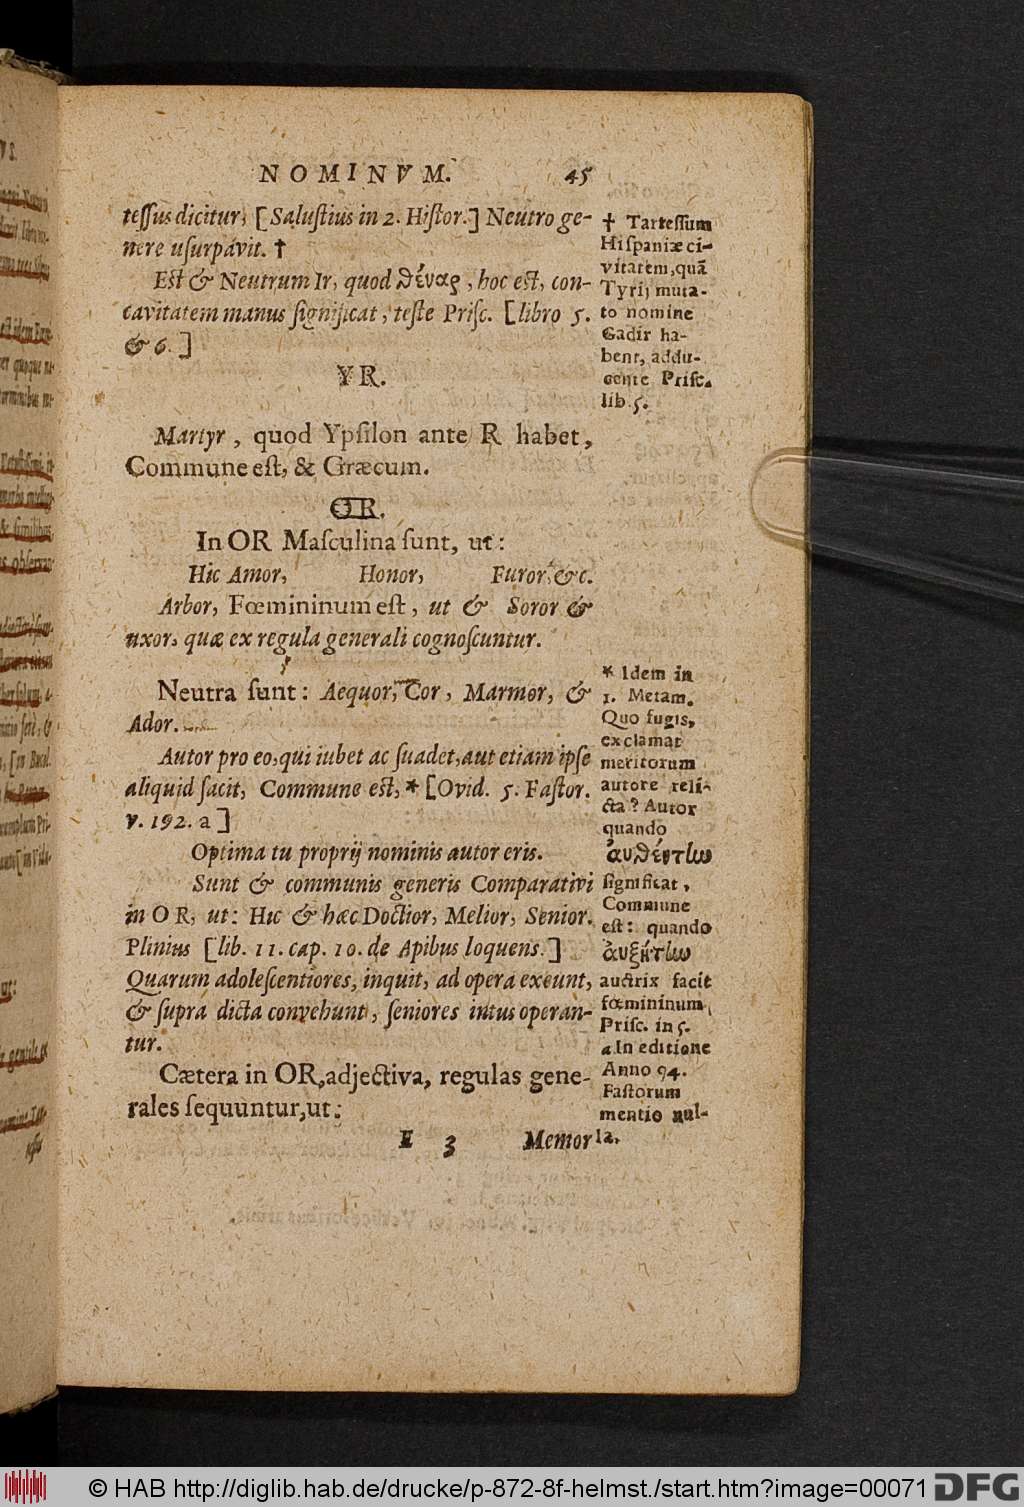 NOMINVM. 45
teſſus dicitur, [Saluſtius in 2. Hiſtor.] Neutro ge-
nere uſurpavit. †
Eſt & Neutrum Ir, quod θέναρ, hoc eſt, con-
cavitatem manus ſignificat, teſte Priſc. [libro 5.
& 6.]
YR.
Martyr, quod Ypſilon ante R habet,
Commune eſt, & Græcum.
OR.
In OR Maſculina ſunt, ut:
Hic Amor, Honor, Furor, &c.
Arbor, Fœmininum eſt, ut & Soror &
uxor, quæ ex regula generali cognoſcuntur.
Neutra ſunt: Aequor, Cor, Marmor, &
Ador.
Autor pro eo, qui iubet ac ſuadet, aut etiam ipſe
aliquid facit, Commune eſt, * [Ovid. 5. Faſtor.
v. 192. a]
Optima tu proprij nominis autor eris.
Sunt & communis generis Comparativi
in OR, ut: Hic & hæc Doctior, Melior, Senior.
Plinius [lib. 11. cap. 10. de Apibus loquens.]
Quarum adoleſcentiores, inquit, ad opera exeunt,
& ſupra dicta convehunt, ſeniores intus operan-
tur.
Cætera in OR, adjectiva, regulas gene-
rales ſequuntur, ut:
E 3 Memor
† Tarteſſum
Hiſpaniæ ci-
vitatem, quā
Tyrij muta-
to nomine
Gadir ha-
bent, addu-
cente Priſc.
lib. 5.
* Idem in
1. Metam.
Quo fugis,
exclamat
meritorum
autore reli-
cta? Autor
quando
αὐθέντω
ſignificat,
Commune
eſt: quando
αὐξήτω
auctrix facit
fœmininum,
Priſc. in 5.
a In editione
Anno 94.
Faſtorum
mentio nul-
la.
© HAB http://diglib.hab.de/drucke/p-872-8f-helmst./start.htm?image=00071 DFG